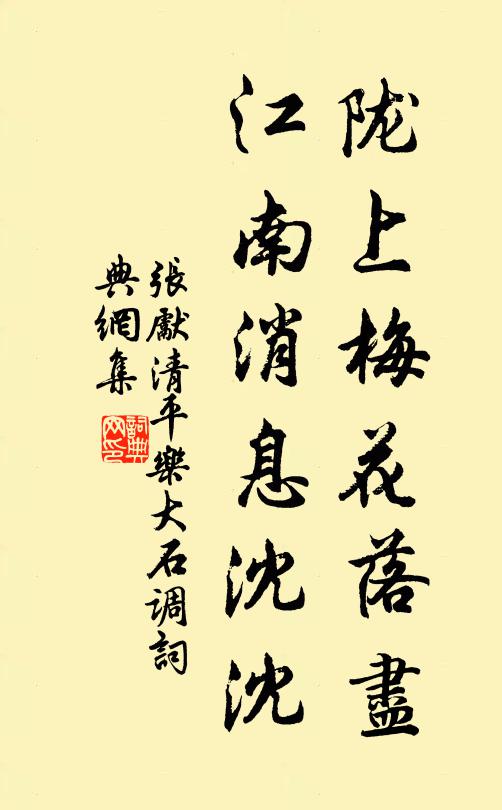 陇上梅花落盡
江南消息沈沈
張獻清平樂大石调詞
典網集
詞典
网印